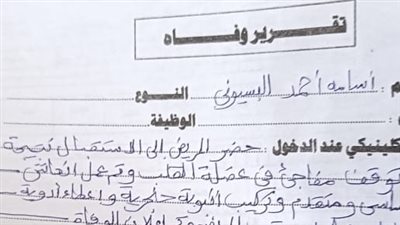 تقرير وفاه
م : أسامه أحمد البسيوني النوع :
الوظيفة :
كلينيكي عند الدخول : حضر المريض إلى الاستقبال نتيجة
توقف مفاجئ في عضلة القلب وتم عمل انعاش
أساسى ومتقدم وتركيب انبوبة حنجرية وإعطاء أدوية
الوفاة